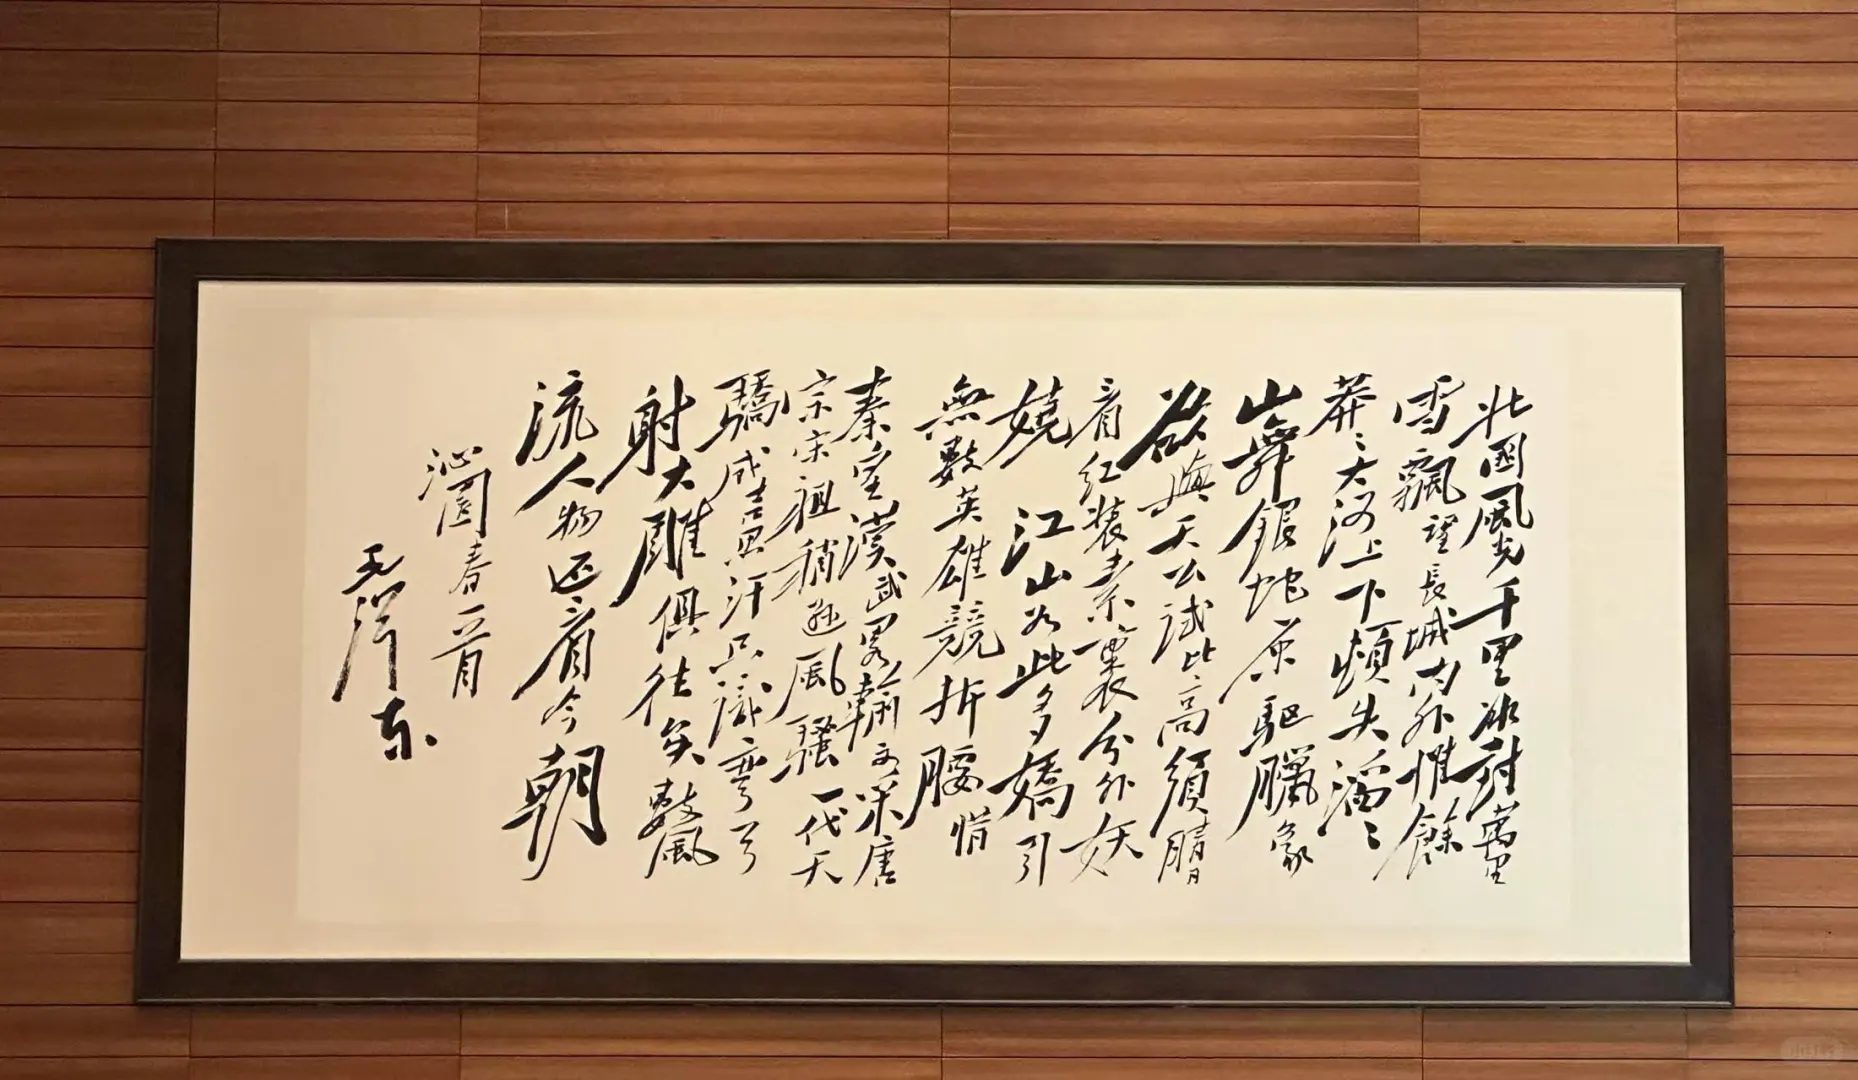 北國風光千里冰封萬里
雪飄望長城內外惟餘
莽〻大河上下頓失滔〻
山舞銀蛇原驅臘象
欲與天公試比高須晴
看紅裝素裹分外妖
嬈 江山如此多嬌引
無數英雄競折腰惜
秦皇漢武略輸文采唐
宗宋祖稍遜風騷一代天
驕成吉思汗只識彎弓
射大雕俱往矣數風
流人物还看今朝
沁園春一首
毛澤東